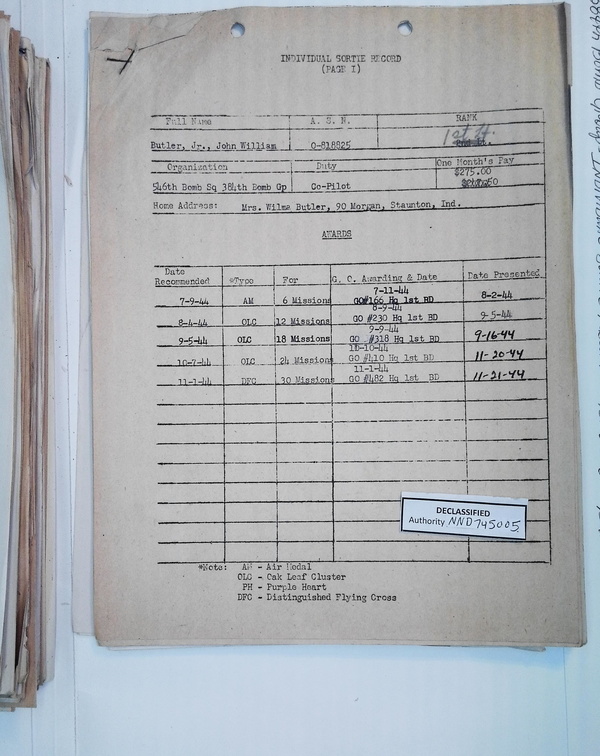 INDIVIDUAL SORTIE RECORD
(PAGE I)
Full Name A. S. N. RANK
Butler, Jr., John William O-818825 1st Lt.
Organization Duty One Month's Pay
$275.00
546th Bomb Sq 384th Bomb Gp Co-Pilot
Home Address: Mrs. Wilma Butler, 90 Morgan, Staunton, Ind.
AWARDS
Date Recommended *Type For G. O. Awarding & Date Date Presented
7-11-44
7-9-44 AM 6 Missions GO#166 Hq 1st BD 8-2-44
8-9-44
8-4-44 OLC 12 Missions GO #230 Hq 1st BD 9-5-44
9-9-44
9-5-44 OLC 18 Missions GO #318 Hq 1st BD 9-16-44
10-10-44
10-7-44 OLC 24 Missions GO #410 Hq 1st BD 11-20-44
11-1-44
11-1-44 DFC 30 Missions GO #482 Hq 1st BD 11-21-44
DECLASSIFIED
Authority NND745005
*Note: AM - Air Medal
OLC - Oak Leaf Cluster
PH - Purple Heart
DFC - Distinguished Flying Cross